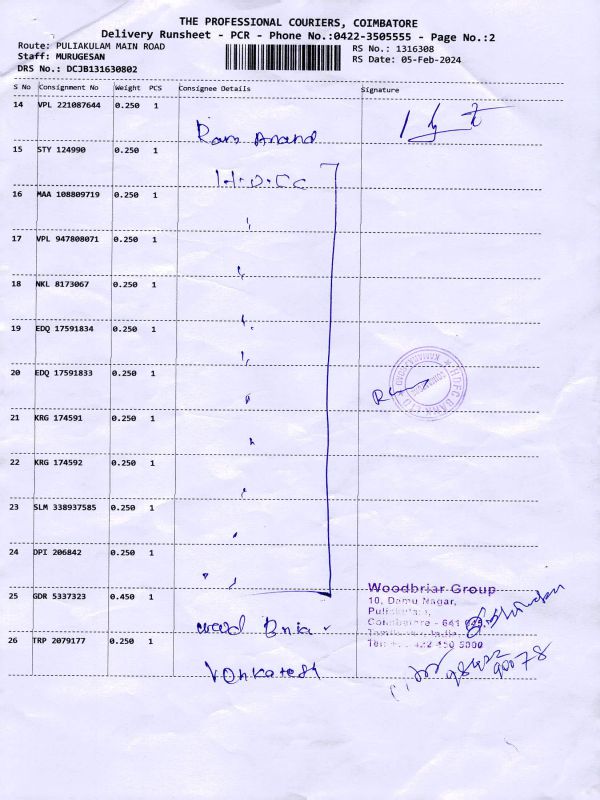 THE PROFESSIONAL COURIERS, COIMBATORE
Delivery Runsheet - PCR - Phone No.:0422-3505555 - Page No.:2
Route: PULIAKULAM MAIN ROAD
RS No.: 1316308
Staff: MURUGESAN
RS Date: 05-Feb-2024
DRS No.: DCJB131630802
S No Consignment No Weight PCS Consignee Details Signature
14 VPL 221087644 0.250 1
Ram Anand
15 STY 124990 0.250 1
16 MAA 108809719 0.250 1
17 VPL 947808071 0.250 1
18 NKL 8173067 0.250 1
19 EDQ 17591834 0.250 1
20 EDQ 17591833 0.250 1
HDFC BANK LTD
KAMARAJ ROAD
21 KRG 174591 0.250 1
22 KRG 174592 0.250 1
23 SLM 338937585 0.250 1
24 DPI 206842 0.250 1
25 GDR 5337323 0.450 1
Woodbriar Group
10, Damu Nagar,
Puliakulam,
Coimbatore - 641 045
Tamilnadu, India
Tel: +91 422 450 5000
26 TRP 2079177 0.250 1
Venkatesh